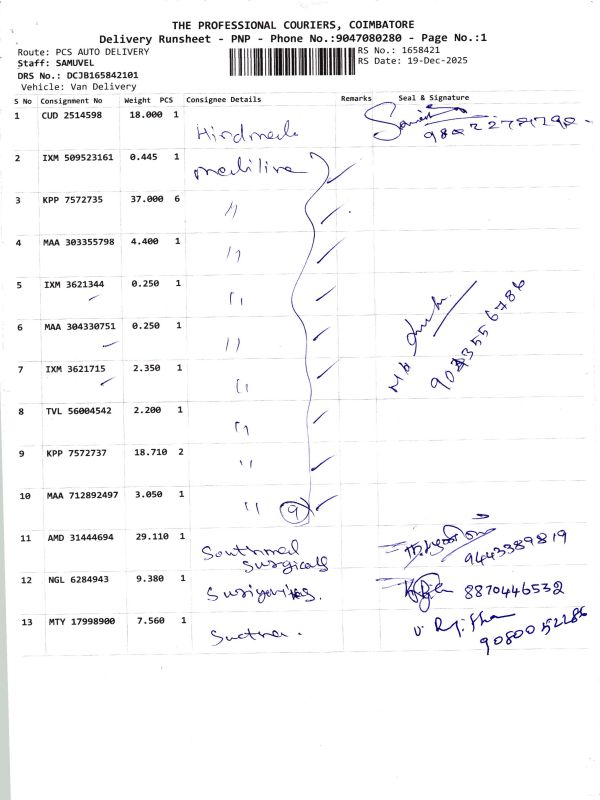 THE PROFESSIONAL COURIERS, COIMBATORE
Delivery Runsheet - PNP - Phone No.:9047080280 - Page No.:1
Route: PCS AUTO DELIVERY RS No.: 1658421
Staff: SAMUVEL RS Date: 19-Dec-2025
DRS No.: DCJB165842101
Vehicle: Van Delivery
S No Consignment No Weight PCS Consignee Details Remarks Seal & Signature
1 CUD 2514598 18.000 1 Hindmeds
2 IXM 509523161 0.445 1 mediline
3 KPP 7572735 37.000 6 〃
4 MAA 303355798 4.400 1 〃
5 IXM 3621344 0.250 1 〃
6 MAA 304330751 0.250 1 〃
7 IXM 3621715 2.350 1 〃
8 TVL 56004542 2.200 1 〃
9 KPP 7572737 18.710 2 〃
10 MAA 712892497 3.050 1 〃 9
11 AMD 31444694 29.110 1 Southmed surgicals 9443389819
12 NGL 6284943 9.380 1 8870446532
13 MTY 17998900 7.560 1 9080052286